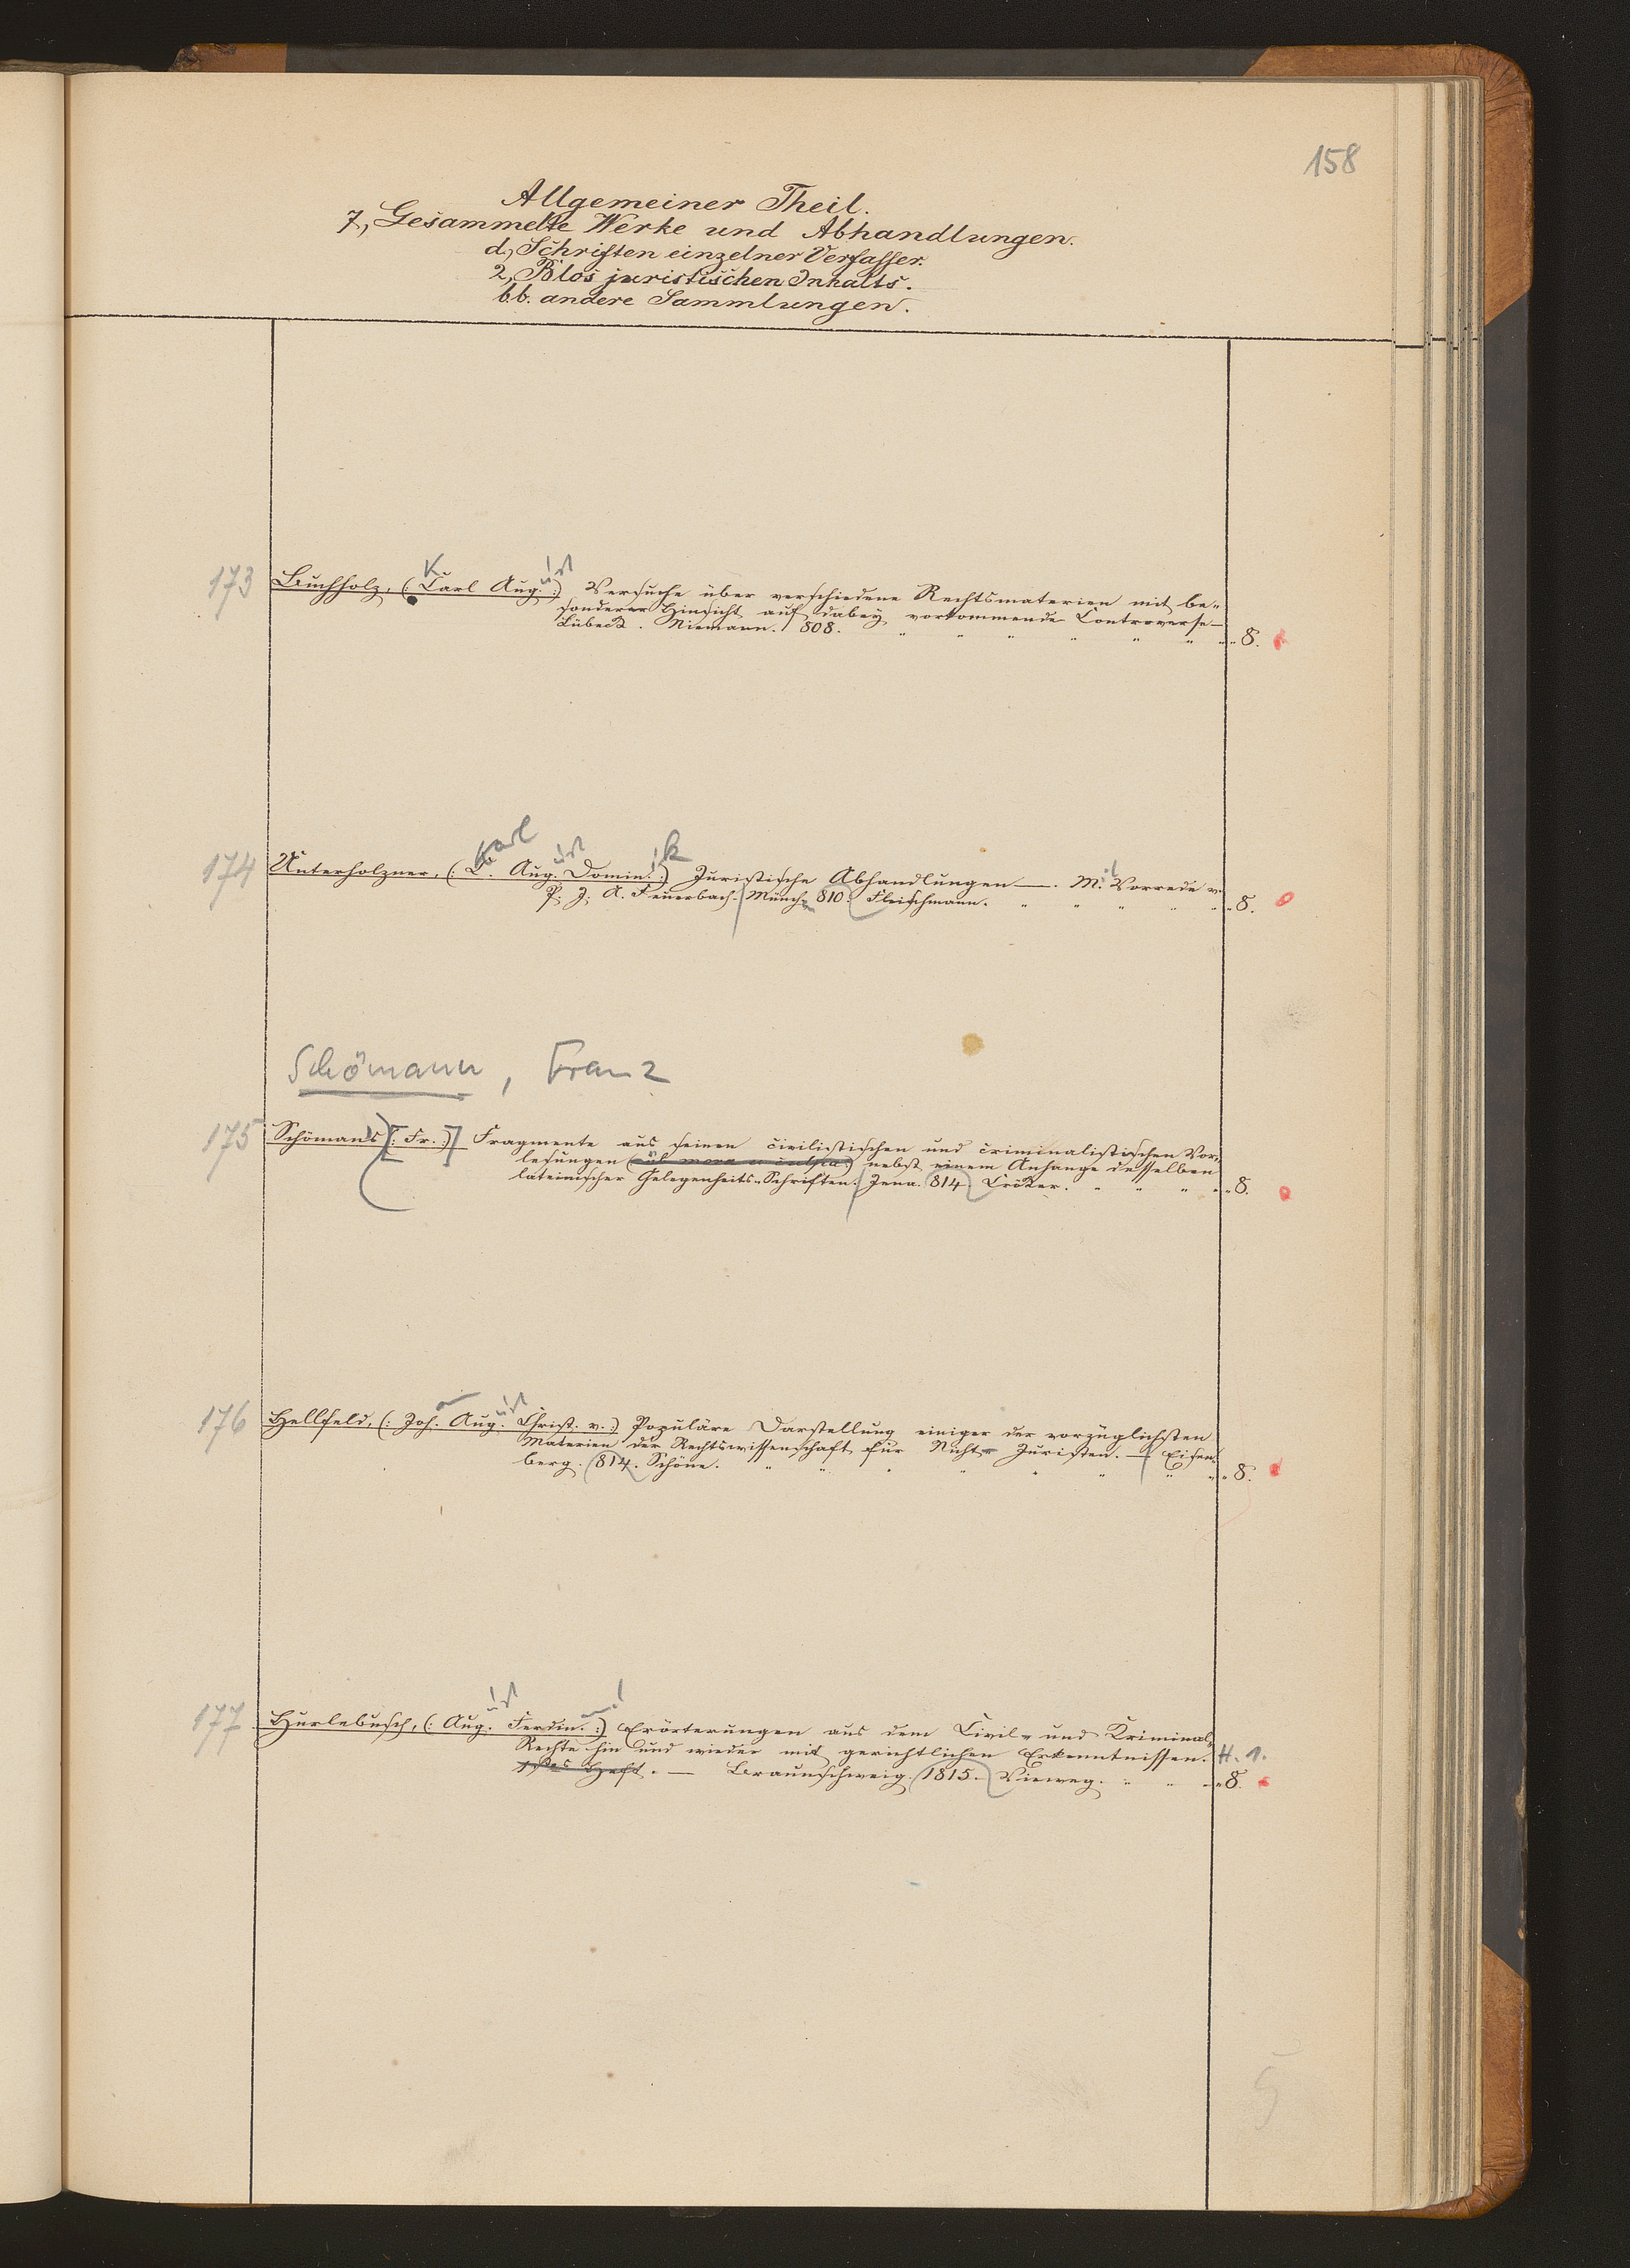 158
Allgemeiner Theil.
7, Gesammelte Werke und Abhandlungen.
d, Schriften einzelner Verfasser.
2, Blos juristischen Inhalts.
bb. andere Sammlungen.
173 Buchholz, (: Carl Aug. :) Versuche über verschiedene Rechtsmaterien mit be-
K ust
sonderer Hinsicht auf dabey vorkommende Controverse —
Lübeck. Niemann. 808. 8.
174 Unterholzner, (: C. Aug. Domin. :) Juristische Abhandlungen —. M. Vorrede v.
Karl ust ik it
P. J. A. Feuerbach. Münch 810. Fleischmann. 8.
Schömann, Franz
175 Schömans (: Fr. :) Fragmente aus seinen civilistischen und criminalistischen Vor-
lesungen nebst einem Anhange desselben
lateinischer Gelegenheits-Schriften. Jena. 814. Cröker. 8.
176 Hellfeld, (: Joh. Aug. Christ. v. :) Populäre Darstellung einiger der vorzüglichsten
ust
Materien der Rechtswissenschaft für Nicht-Juristen. — Eisen-
berg. 814. Schöne. 8.
177 Hurlebusch, (: Aug. Ferdin. :) Erörterungen aus dem Civil- und Kriminal-
ust
Rechte hin und wieder mit gerichtlichen Erkenntnissen. H. 1.
1stes Heft. — Braunschweig. 1815. Vieweg. 8.
5